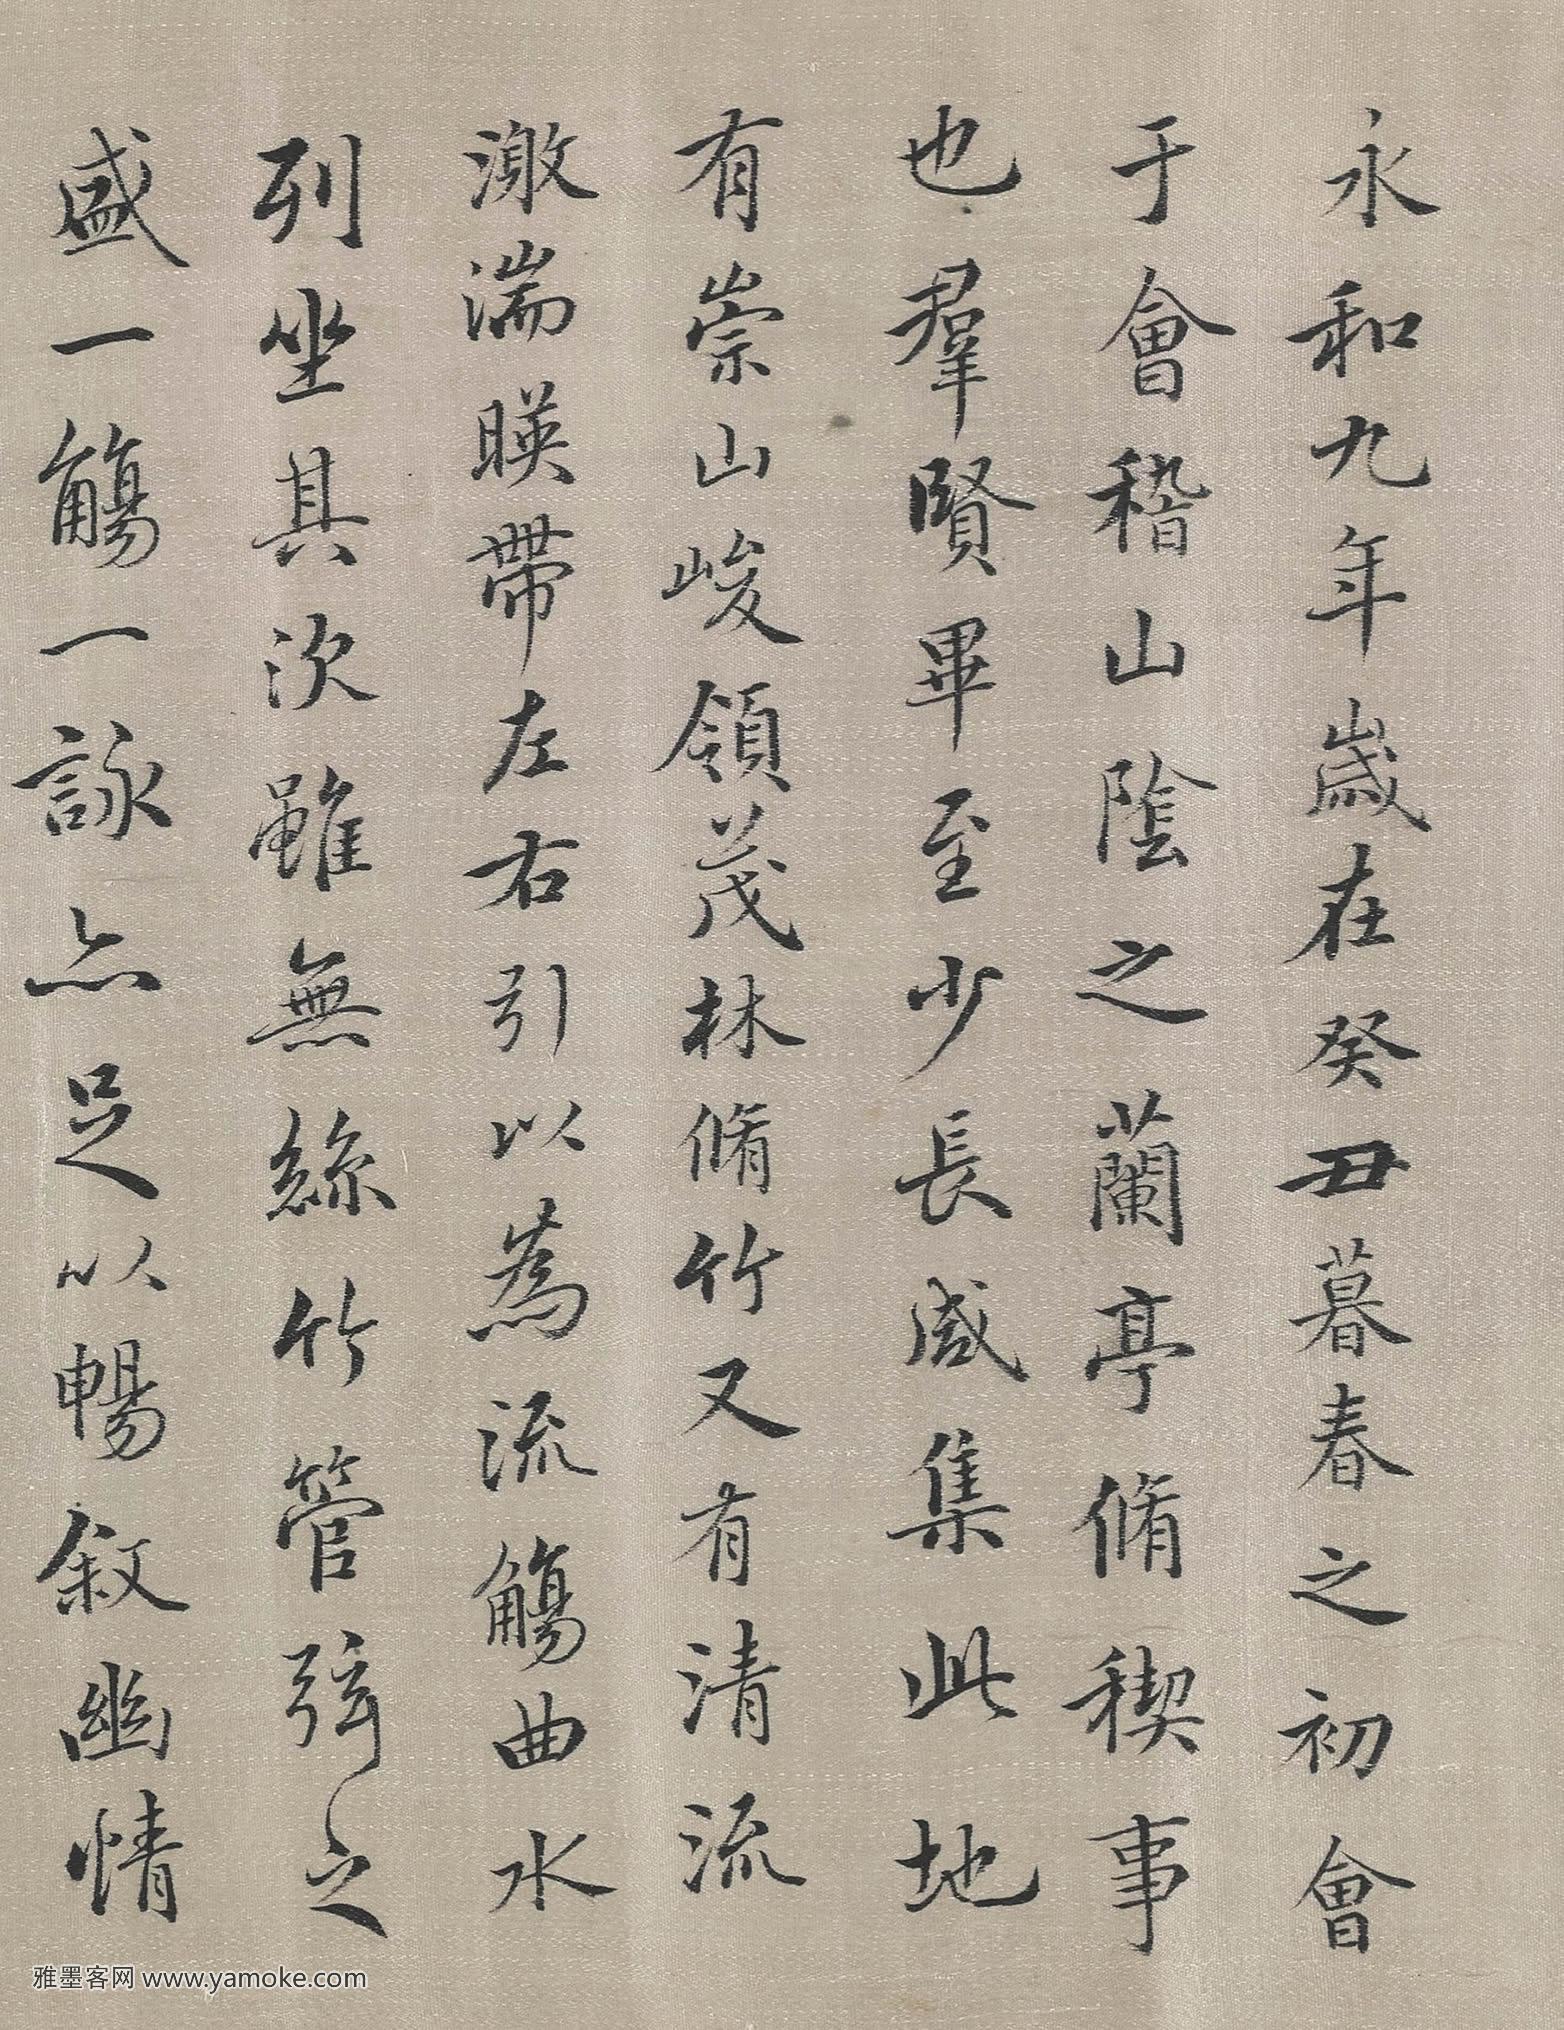 永和九年歲在癸丑暮春之初會
于會稽山陰之蘭亭脩稧事
也羣賢畢至少長咸集此地
有崇山峻領茂林脩竹又有清流
激湍暎帶左右引以為流觴曲水
列坐其次雖無絲竹管弦之
盛一觴一詠亦足以暢敘幽情
雅墨客网 www.yamoke.com